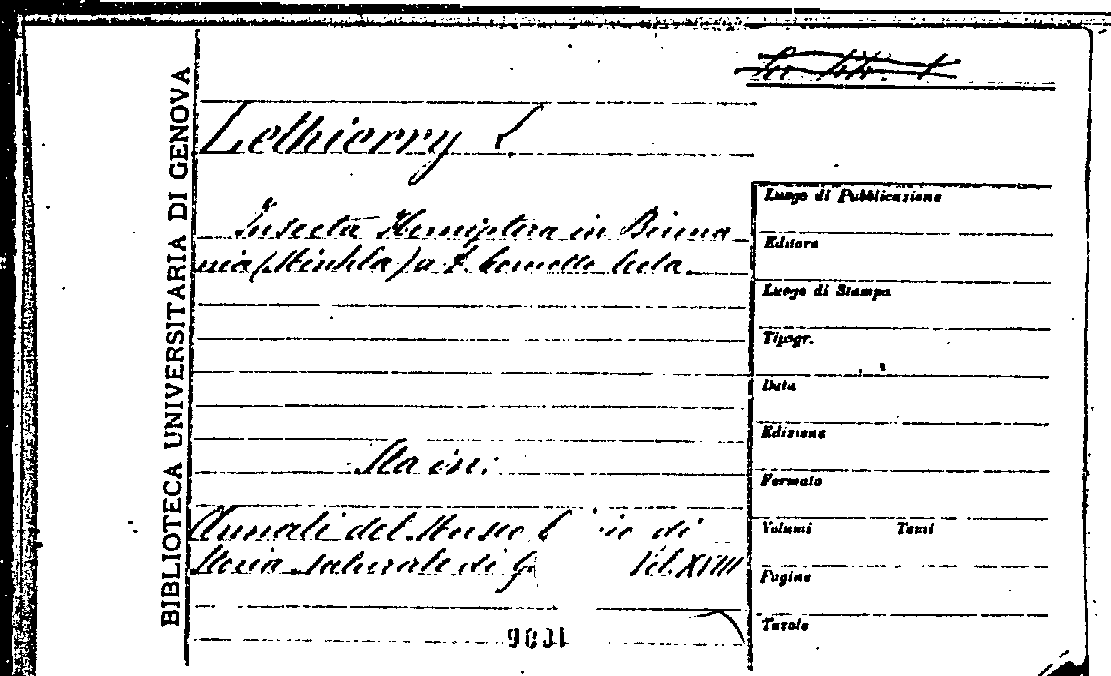 BIBLIOTECA UNIVERSITARIA DI GENOVA
Lethierry L.
Insecta Hemiptera in Birma
nia (Minhla) a F. Comotto lecta.
Sta in:
Annali del Museo di
Storia naturale di G Vol. XVIII
9801
Luogo di Pubblicazione
Editore
Luogo di Stampa
Tipogr.
Data
Edizione
Formato
Volumi Tomi
Pagine
Tavole